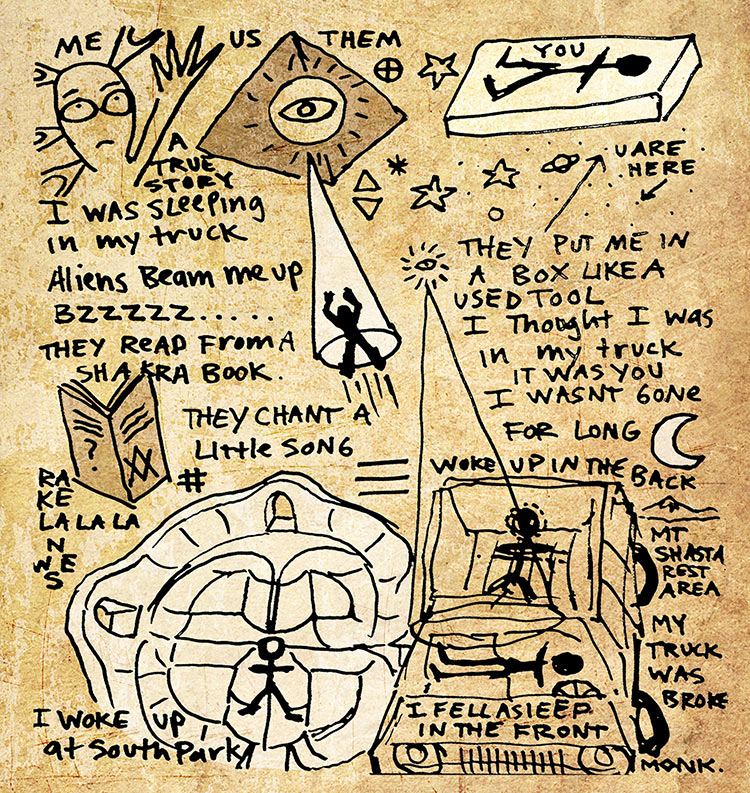 ME US THEM
YOU
A
TRUE
STORY
I WAS SLEEPING
in my truck
Aliens Beam me up
BZZZZZ.....
THEY READ FROM A
SHAKRA BOOK.
?
XX
THEY CHANT A
Little SONG
#
RA
KE
LA LA LA
N
W E
S
I WOKE UP
at South Park
U ARE
HERE
THEY PUT ME IN
A BOX LIKE A
USED TOOL
I Thought I was
in my truck
IT WAS YOU
I WASNT GONE
FOR LONG
WOKE UP IN THE BACK
MT
SHASTA
REST
AREA
MY
TRUCK
WAS
BROKE
I FELL ASLEEP
IN THE FRONT
MONK.